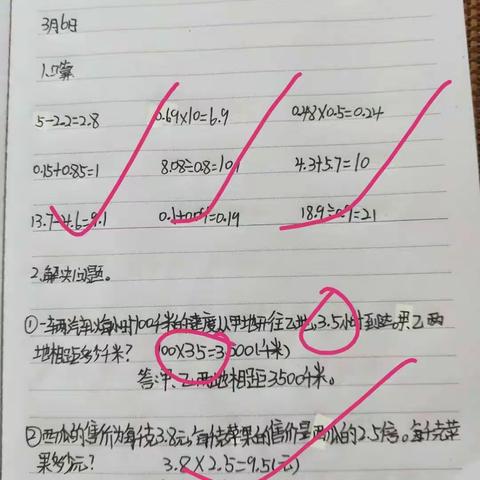 3月6日
1.口算
5-2.2=2.8 0.69×10=6.9 0.48×0.5=0.24
0.15+0.85=1 8.08÷0.8=10.1 4.3+5.7=10
13.7-4.6=9.1 0.1+0.09=0.19 18.9÷0.9=21
2.解决问题。
①一辆汽车以每小时100千米的速度从甲地开往乙地,3.5小时到达。甲乙两
地相距多少千米? 100×35=3500(千米)
答:甲、乙两地相距3500千米。
②西瓜的售价为每千克3.8元,每千克苹果的售价是西瓜的2.5倍。每千克苹
果多少元? 3.8×2.5=9.5(元)